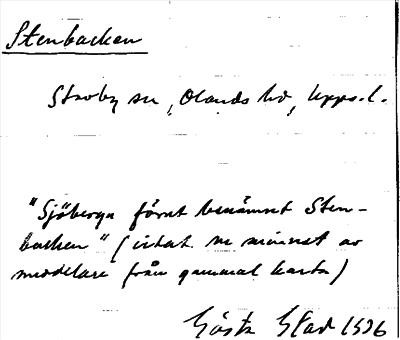 Stenbacken
Skoby sn, Olands hd, Upps. l.
"Sjöberga förut benämnt Sten-
backen" (citat ur minnet av
meddelare från gammal karta)
Gösta Elad 1936